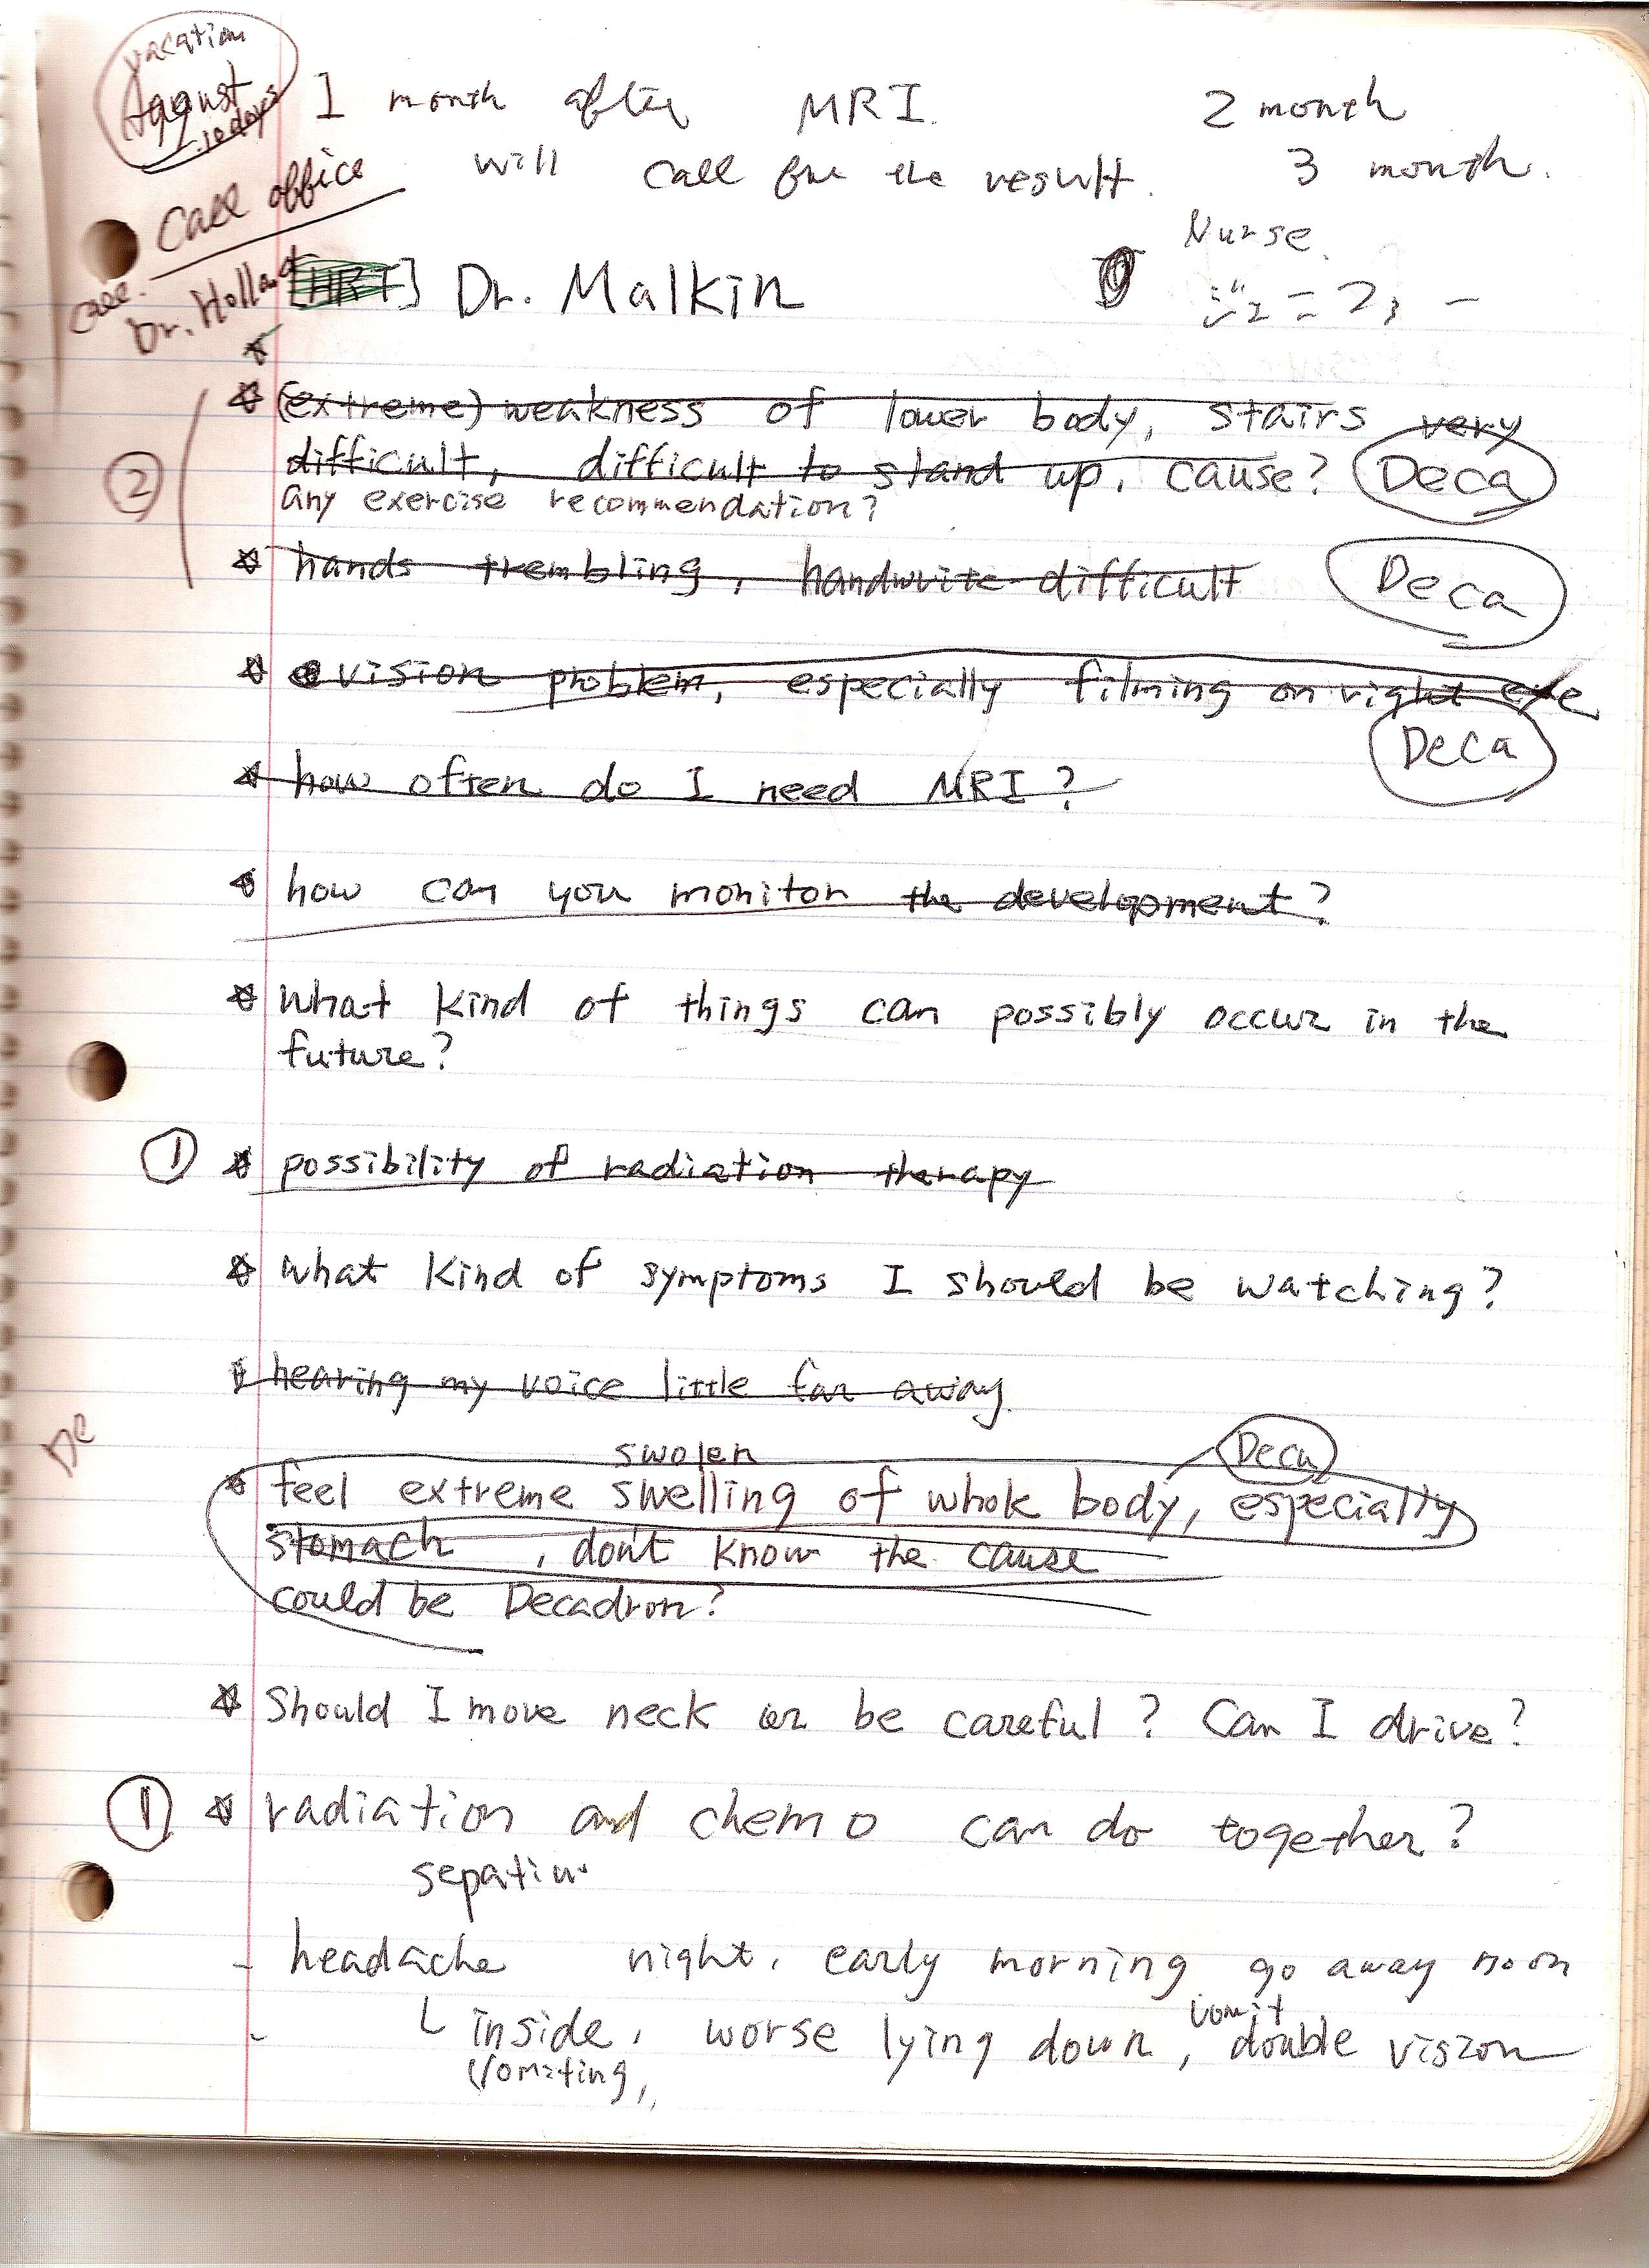 vacation
August
1 month after MRI. 2 month
will call for the result. 3 month.
call office
Nurse.
call. Dr. Holland
[MRI] Dr. Malkin
(extreme) weakness of lower body, stairs very
difficult, difficult to stand up, cause? Deca
② any exercise recommendation?
hands trembling, handwrite difficult Deca
vision problem, especially filming on right eye
Deca
how often do I need MRI?
how can you monitor the development?
What kind of things can possibly occur in the
future?
① possibility of radiation therapy
What kind of symptoms I should be watching?
hearing my voice little far away.
De
swolen Deca
feel extreme swelling of whole body, especially
stomach, don't know the cause
could be Decadron?
Should I move neck or be careful? Can I drive?
① radiation and chemo can do together?
- headache night, early morning go away noon
vomit
- inside, worse lying down, double vision
vomiting,